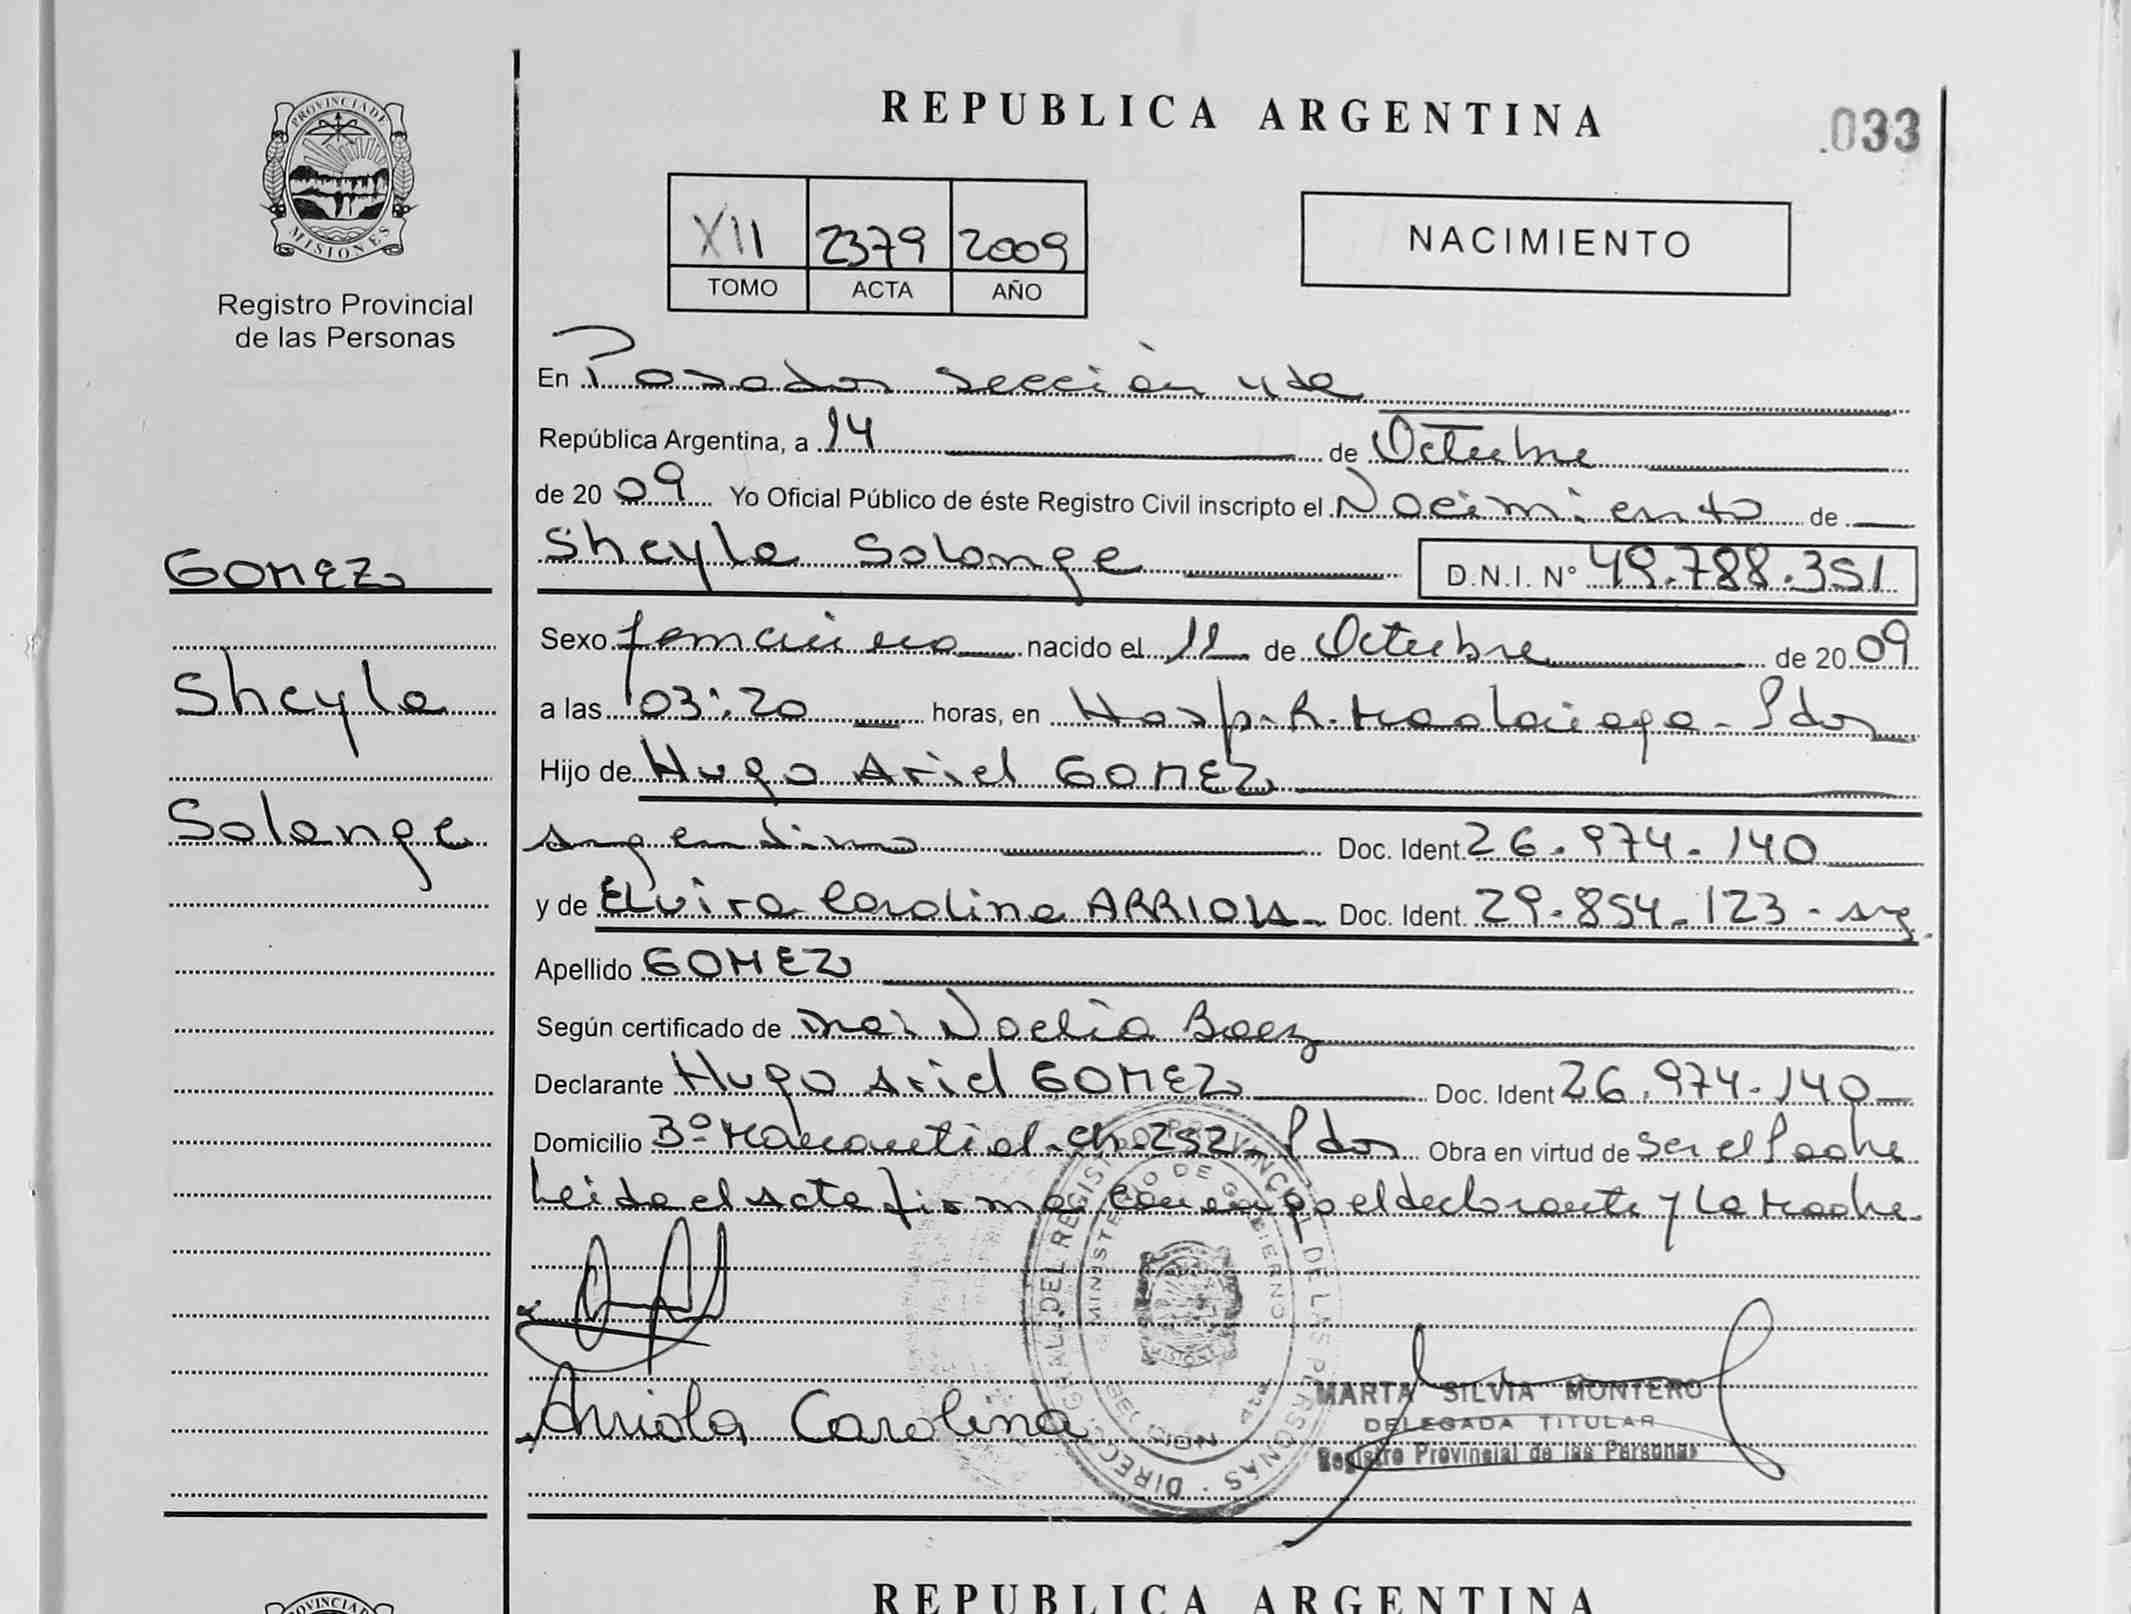 REPUBLICA ARGENTINA
.033
PROVINCIA DE
MISIONES
Registro Provincial
de las Personas
XII 2379 2009
TOMO ACTA AÑO
NACIMIENTO
En Posadas sección 4 de
República Argentina, a 14 de Octubre
de 2009 Yo Oficial Público de éste Registro Civil inscripto el Nacimiento de
Sheyla Solange D.N.I. N° 49.788.351
GOMEZ
Sheyla
Solange
Sexo femenino nacido el 11 de Octubre de 2009
a las 03:20 horas, en Hosp. R. Madariaga - Pdas
Hijo de Hugo Ariel GOMEZ
argentino Doc. Ident. 26.974.140
y de Elvira Carolina ARRIOLA Doc. Ident. 29.854.123 - arg.
Apellido GOMEZ
Según certificado de Noelia Baez
Declarante Hugo Ariel GOMEZ Doc. Ident 26.974.140
Domicilio 3° Manantial - Ch. 252 - Pdas Obra en virtud de ser el Padre
Leida el Acta firman conmigo el declarante y la Madre
Arriola Carolina
DIRECC. GRAL. DEL REGISTRO PROVINCIAL DE LAS PERSONAS
MINISTERIO DE GOBIERNO
MISIONES
MARTA SILVIA MONTERO
DELEGADA TITULAR
Registro Provincial de las Personas
REPUBLICA ARGENTINA